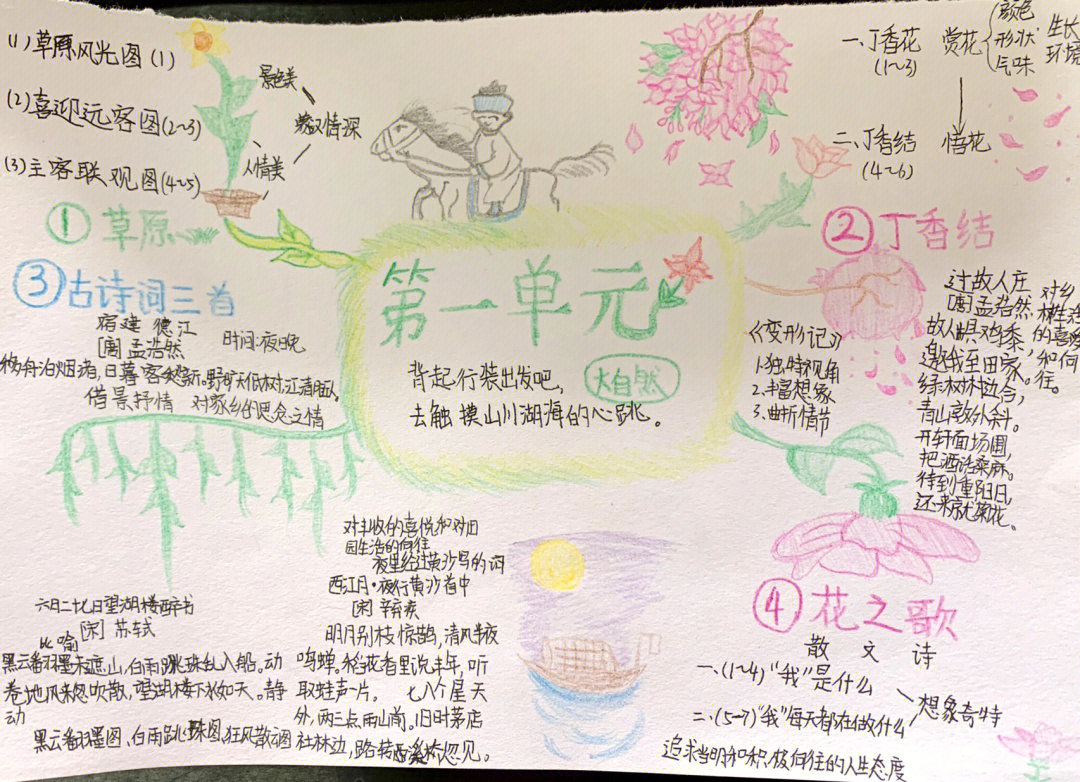 (1)草原风光图(1)
(2)喜迎远客图(2~3)
(3)主客联观图(4~5)
景色美
人情美
蒙汉情深
①草原
一、丁香花
(1~3)
赏花
颜色
形状
气味
生长
环境
二、丁香结
(4~6)
悟花
②丁香结
第一单元
背起行装出发吧,
去触摸山川湖海的心跳。
大自然
③古诗词三首
宿建德江
[唐]孟浩然
时间:夜晚
移舟泊烟渚,日暮客愁新。野旷天低树,江清月近人。
借景抒情 对家乡的思念之情
《变形记》
1.独特视角
2.丰富想象
3.曲折情节
过故人庄
[唐]孟浩然
故人具鸡黍,
邀我至田家。
绿树村边合,
青山郭外斜。
开轩面场圃,
把酒话桑麻。
待到重阳日,
还来就菊花。
对乡
村生活
的喜爱
和向
往。
六月二十七日望湖楼醉书
[宋]苏轼
比喻
黑云翻墨未遮山,白雨跳珠乱入船。动
卷地风来忽吹散,望湖楼下水如天。静
动
黑云翻墨图,白雨跳珠图,狂风散云图
对丰收的喜悦和对田
园生活的向往
夜里经过黄沙写的词
西江月·夜行黄沙道中
[宋]辛弃疾
明月别枝惊鹊,清风半夜
鸣蝉。稻花香里说丰年,听
取蛙声一片。七八个星天
外,两三点雨山前。旧时茅店
社林边,路转溪桥忽见。
④花之歌
散文诗
一、(1~4)“我”是什么
二、(5~7)“我”每天都在做什么
想象奇特
追求光明和积极向往的人生态度